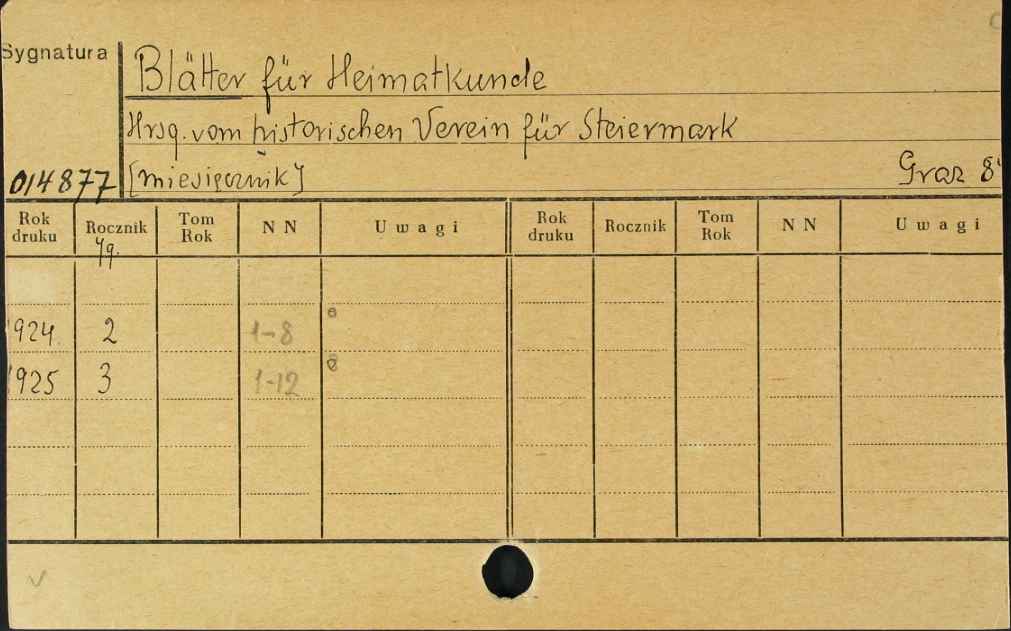 Sygnatura
Blätter für Heimatkunde
Hrsg. vom historischen Verein für Steiermark
014877 [miesięcznik] Graz 8°
Rok druku Rocznik Tom Rok N N Uwagi Rok druku Rocznik Tom Rok N N Uwagi
Jg.
1924. 2 1-8
1925 3 1-12